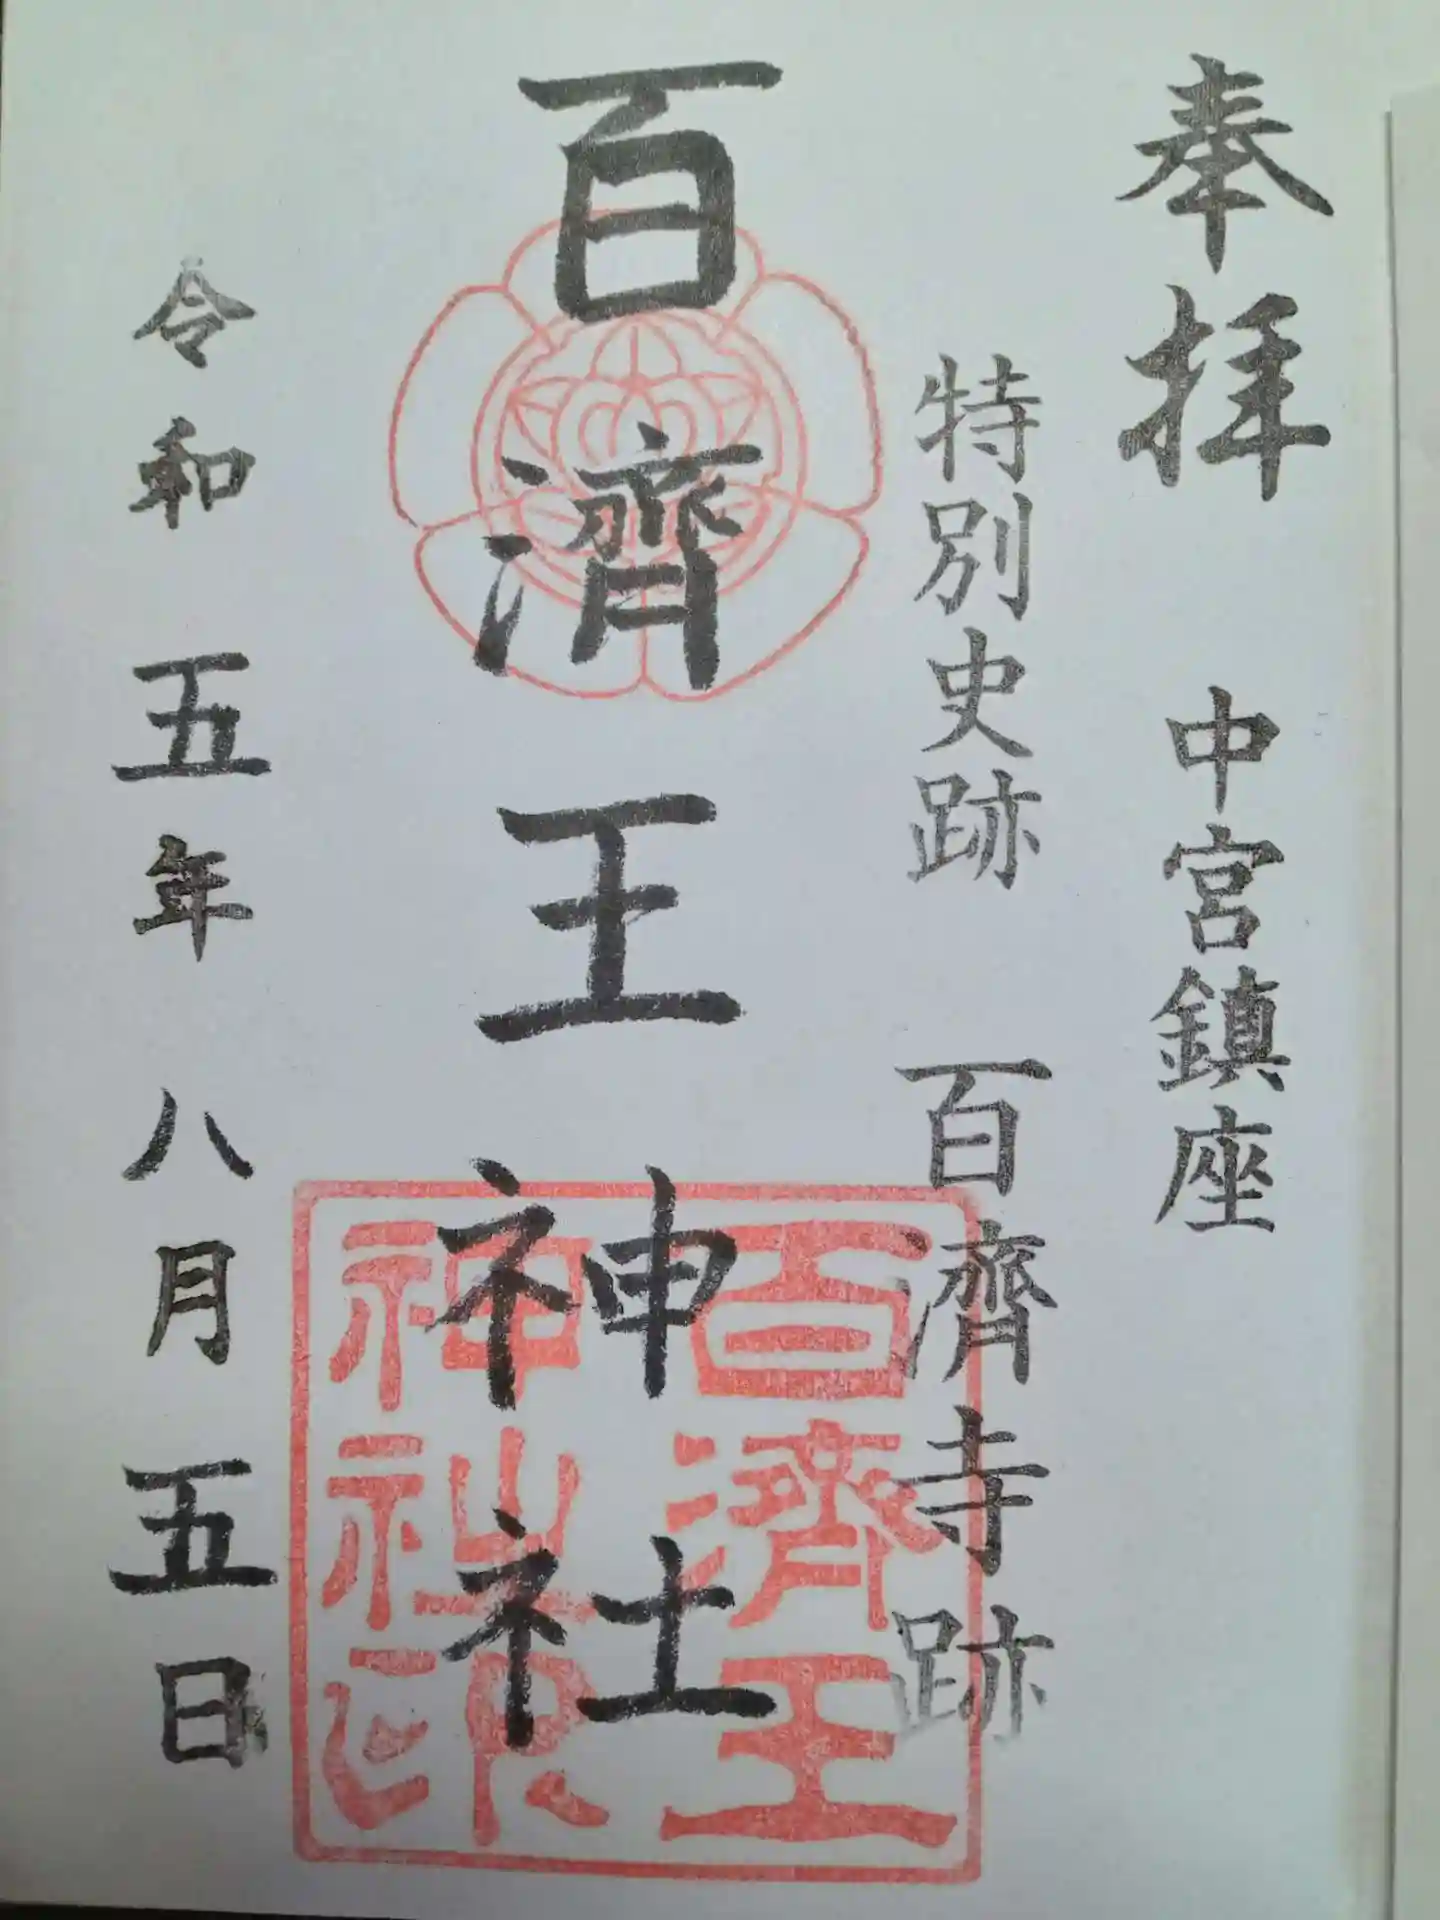 奉拝 中宮鎮座
特別史跡 百濟寺跡
百濟王神社
百濟王
神社印
令和五年八月五日